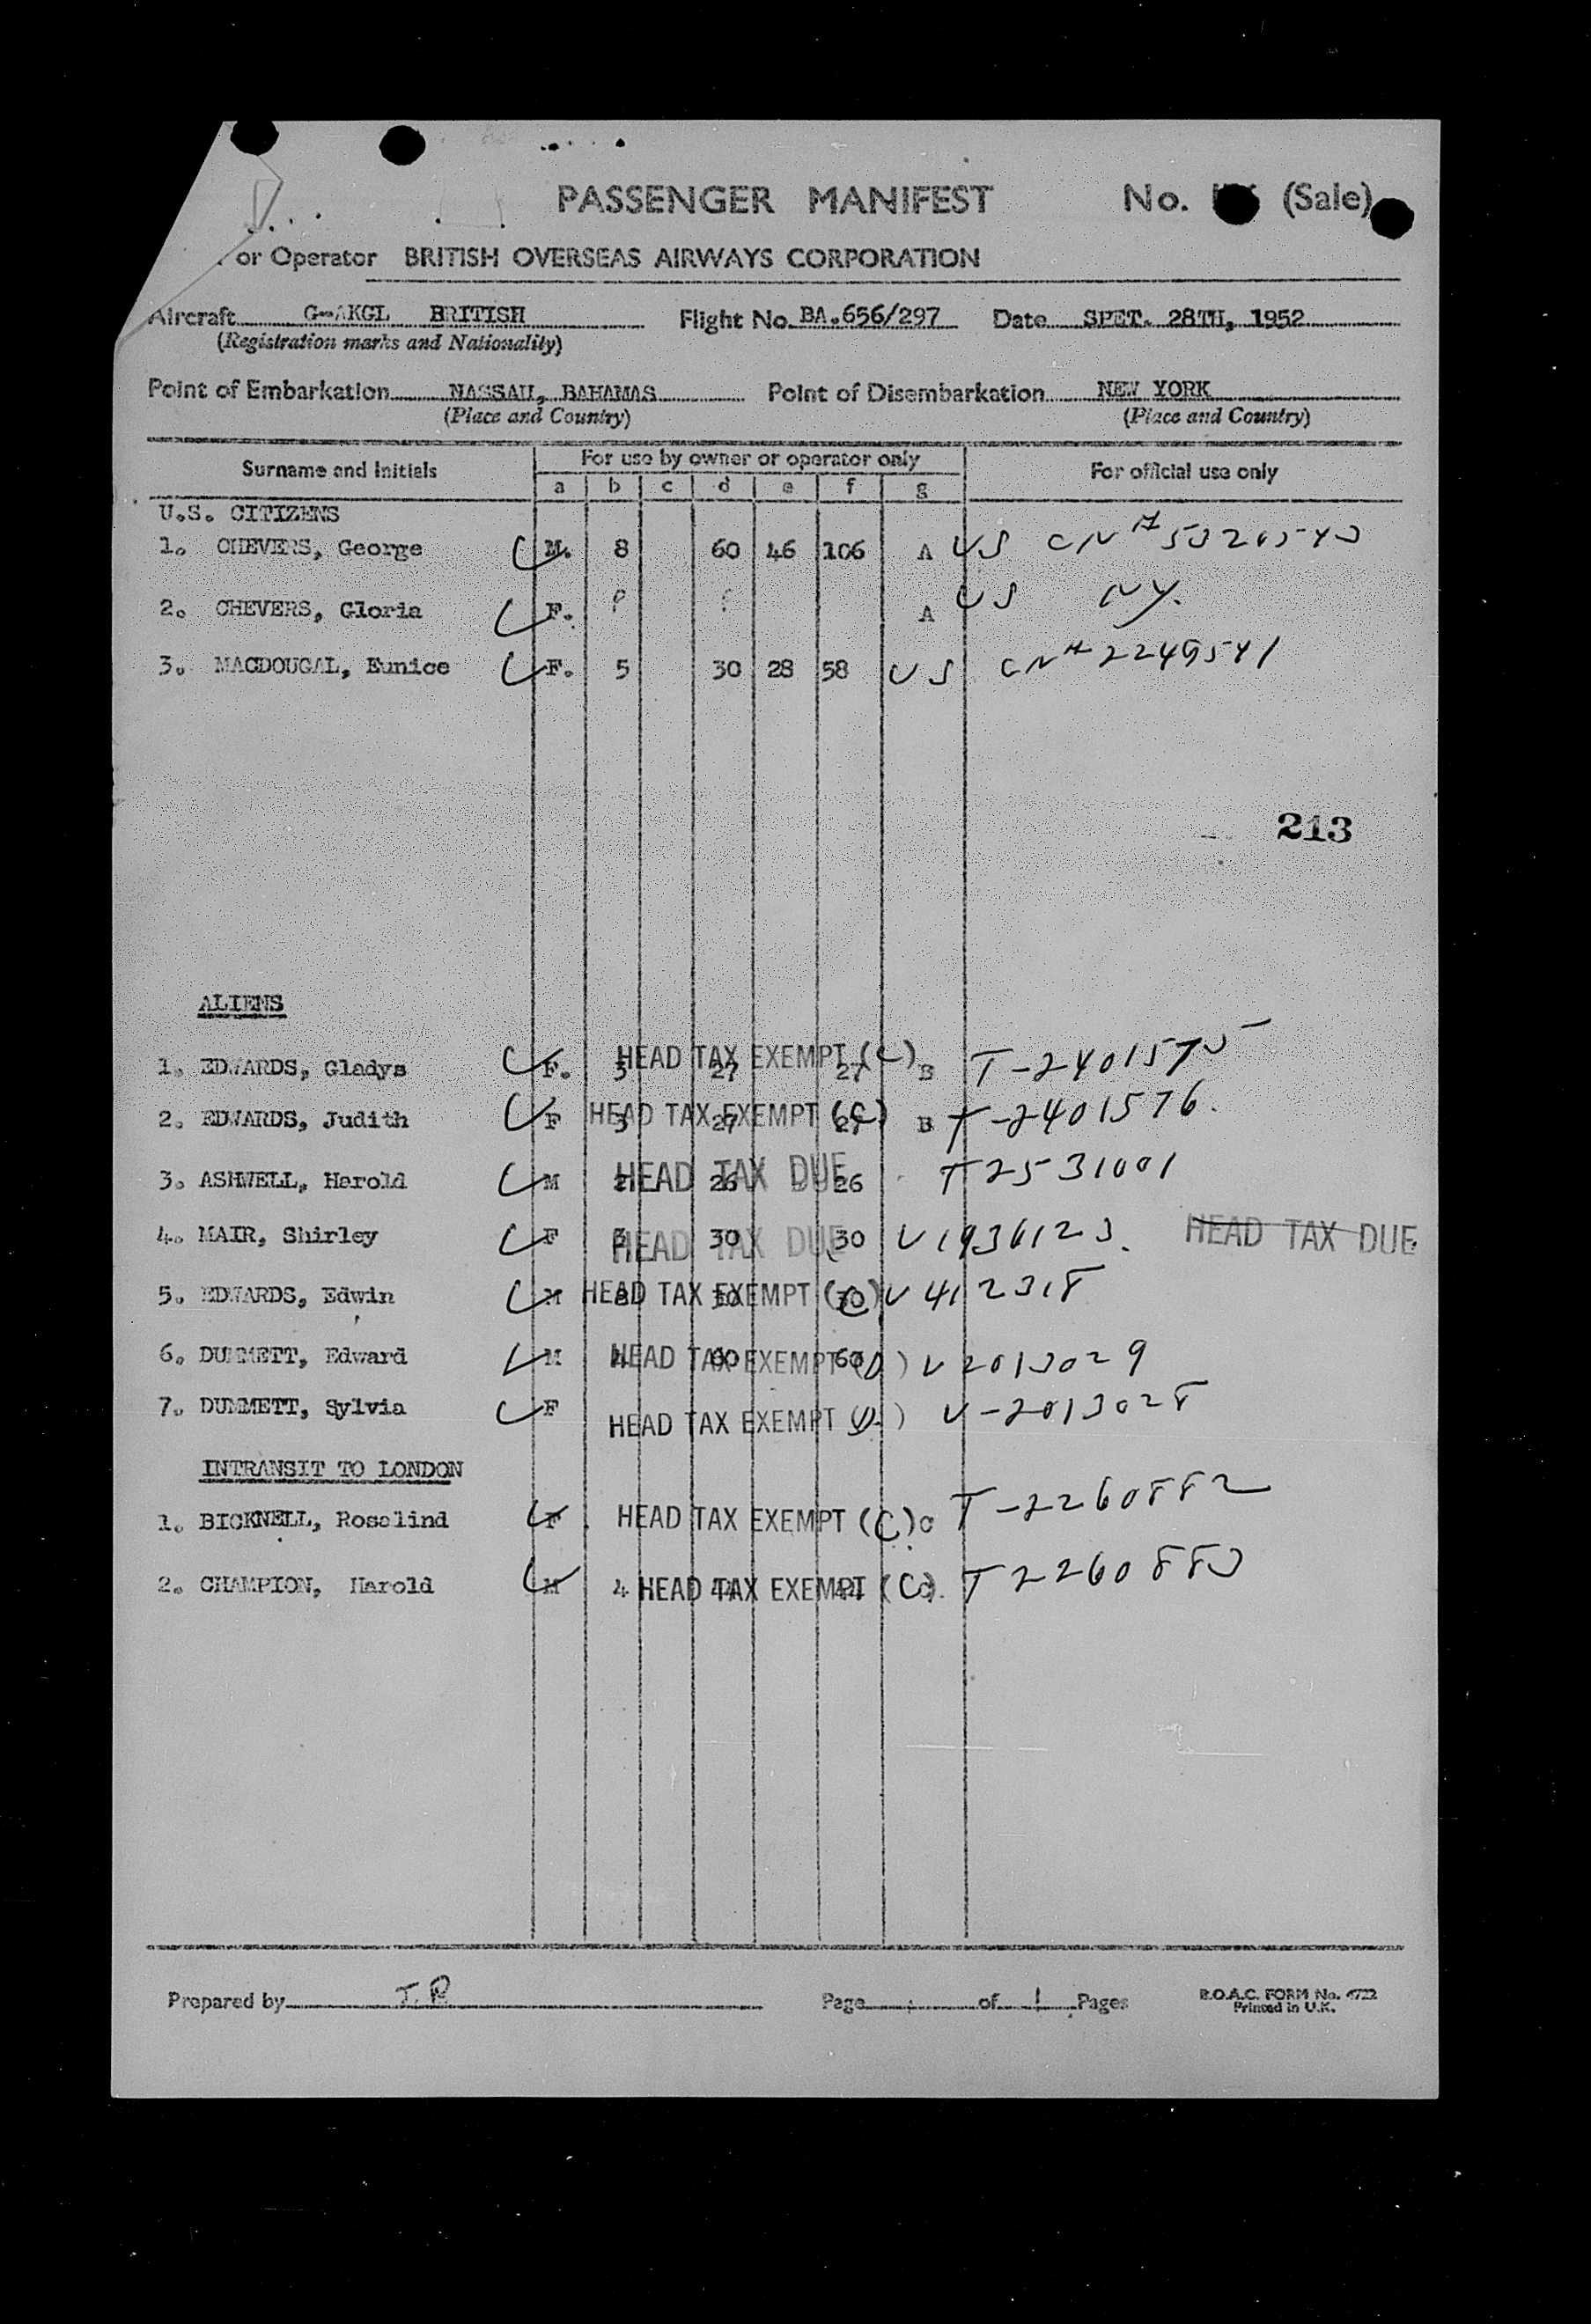 PASSENGER MANIFEST No. (Sale)
or Operator BRITISH OVERSEAS AIRWAYS CORPORATION
Aircraft G-AKGL BRITISH Flight No. BA.656/297 Date SPET. 28TH, 1952
(Registration marks and Nationality)
Point of Embarkation NASSAU, BAHAMAS Point of Disembarkation NEW YORK
(Place and Country) (Place and Country)
Surname and Initials For use by owner or operator only For official use only
a b c d e f g
U.S. CITIZENS
1. CHEVERS, George M. 8 60 46 106 A US CN #
2. CHEVERS, Gloria F. A US NY.
3. MACDOUGAL, Eunice F. 5 30 28 58 US CN # 2249541
213
ALIENS
1. EDWARDS, Gladys F. 3 HEAD TAX EXEMPT (C) 27 27 B T-2401575
2. EDWARDS, Judith F 3 HEAD TAX EXEMPT (C) 27 27 B T-2401576.
3. ASHWELL, Harold M HEAD TAX DUE 26 26 T2531001
4. MAIR, Shirley F 3 HEAD TAX DUE 30 30 V1936123. HEAD TAX DUE
5. EDWARDS, Edwin M HEAD TAX EXEMPT (C) 30 30 V412318
6. DUMMETT, Edward M HEAD TAX EXEMPT (D) 60 60 V2013029
7. DUMMETT, Sylvia F HEAD TAX EXEMPT (D) V-2013028
INTRANSIT TO LONDON
1. BICKNELL, Rosalind F HEAD TAX EXEMPT (C) C T-2260882
2. CHAMPION, Harold M 4 HEAD TAX EXEMPT (C) C T2260883
Prepared by Page of 1 Pages B.O.A.C. FORM No. 4722
Printed in U.K.